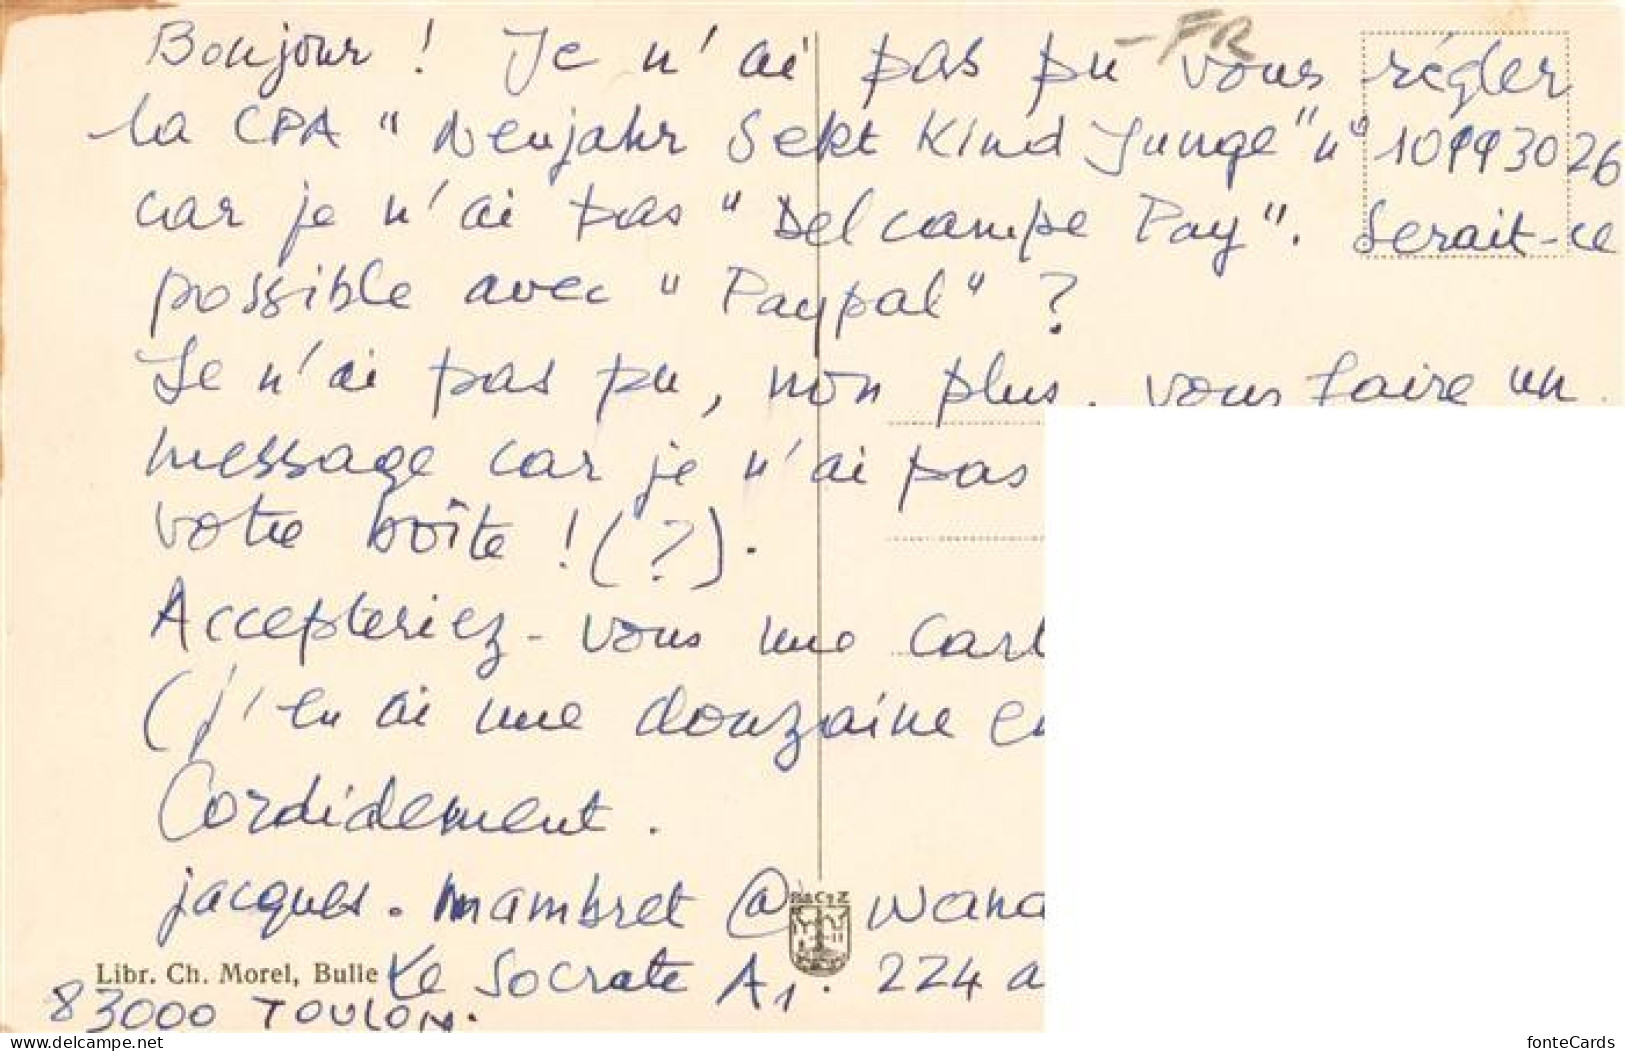 - FR
Bonjour ! Je n'ai pas pu vous régler
la CPA " Neujahr Sekt Kind Junge " n° 10993026
car je n'ai pas " Delcampe Pay ". Serait-ce
possible avec " Paypal " ?
Je n'ai pas pu, non plus, vous faire un
message car je n'ai pas
votre boîte ! (?).
Accepteriez-vous une
(j'en ai une douzaine
Cordialement.
jacques.mambret @
Le Socrate A1. 224 a
83000 TOULON.
Libr. Ch. Morel, Bulle
www.delcampe.net
fonteCards